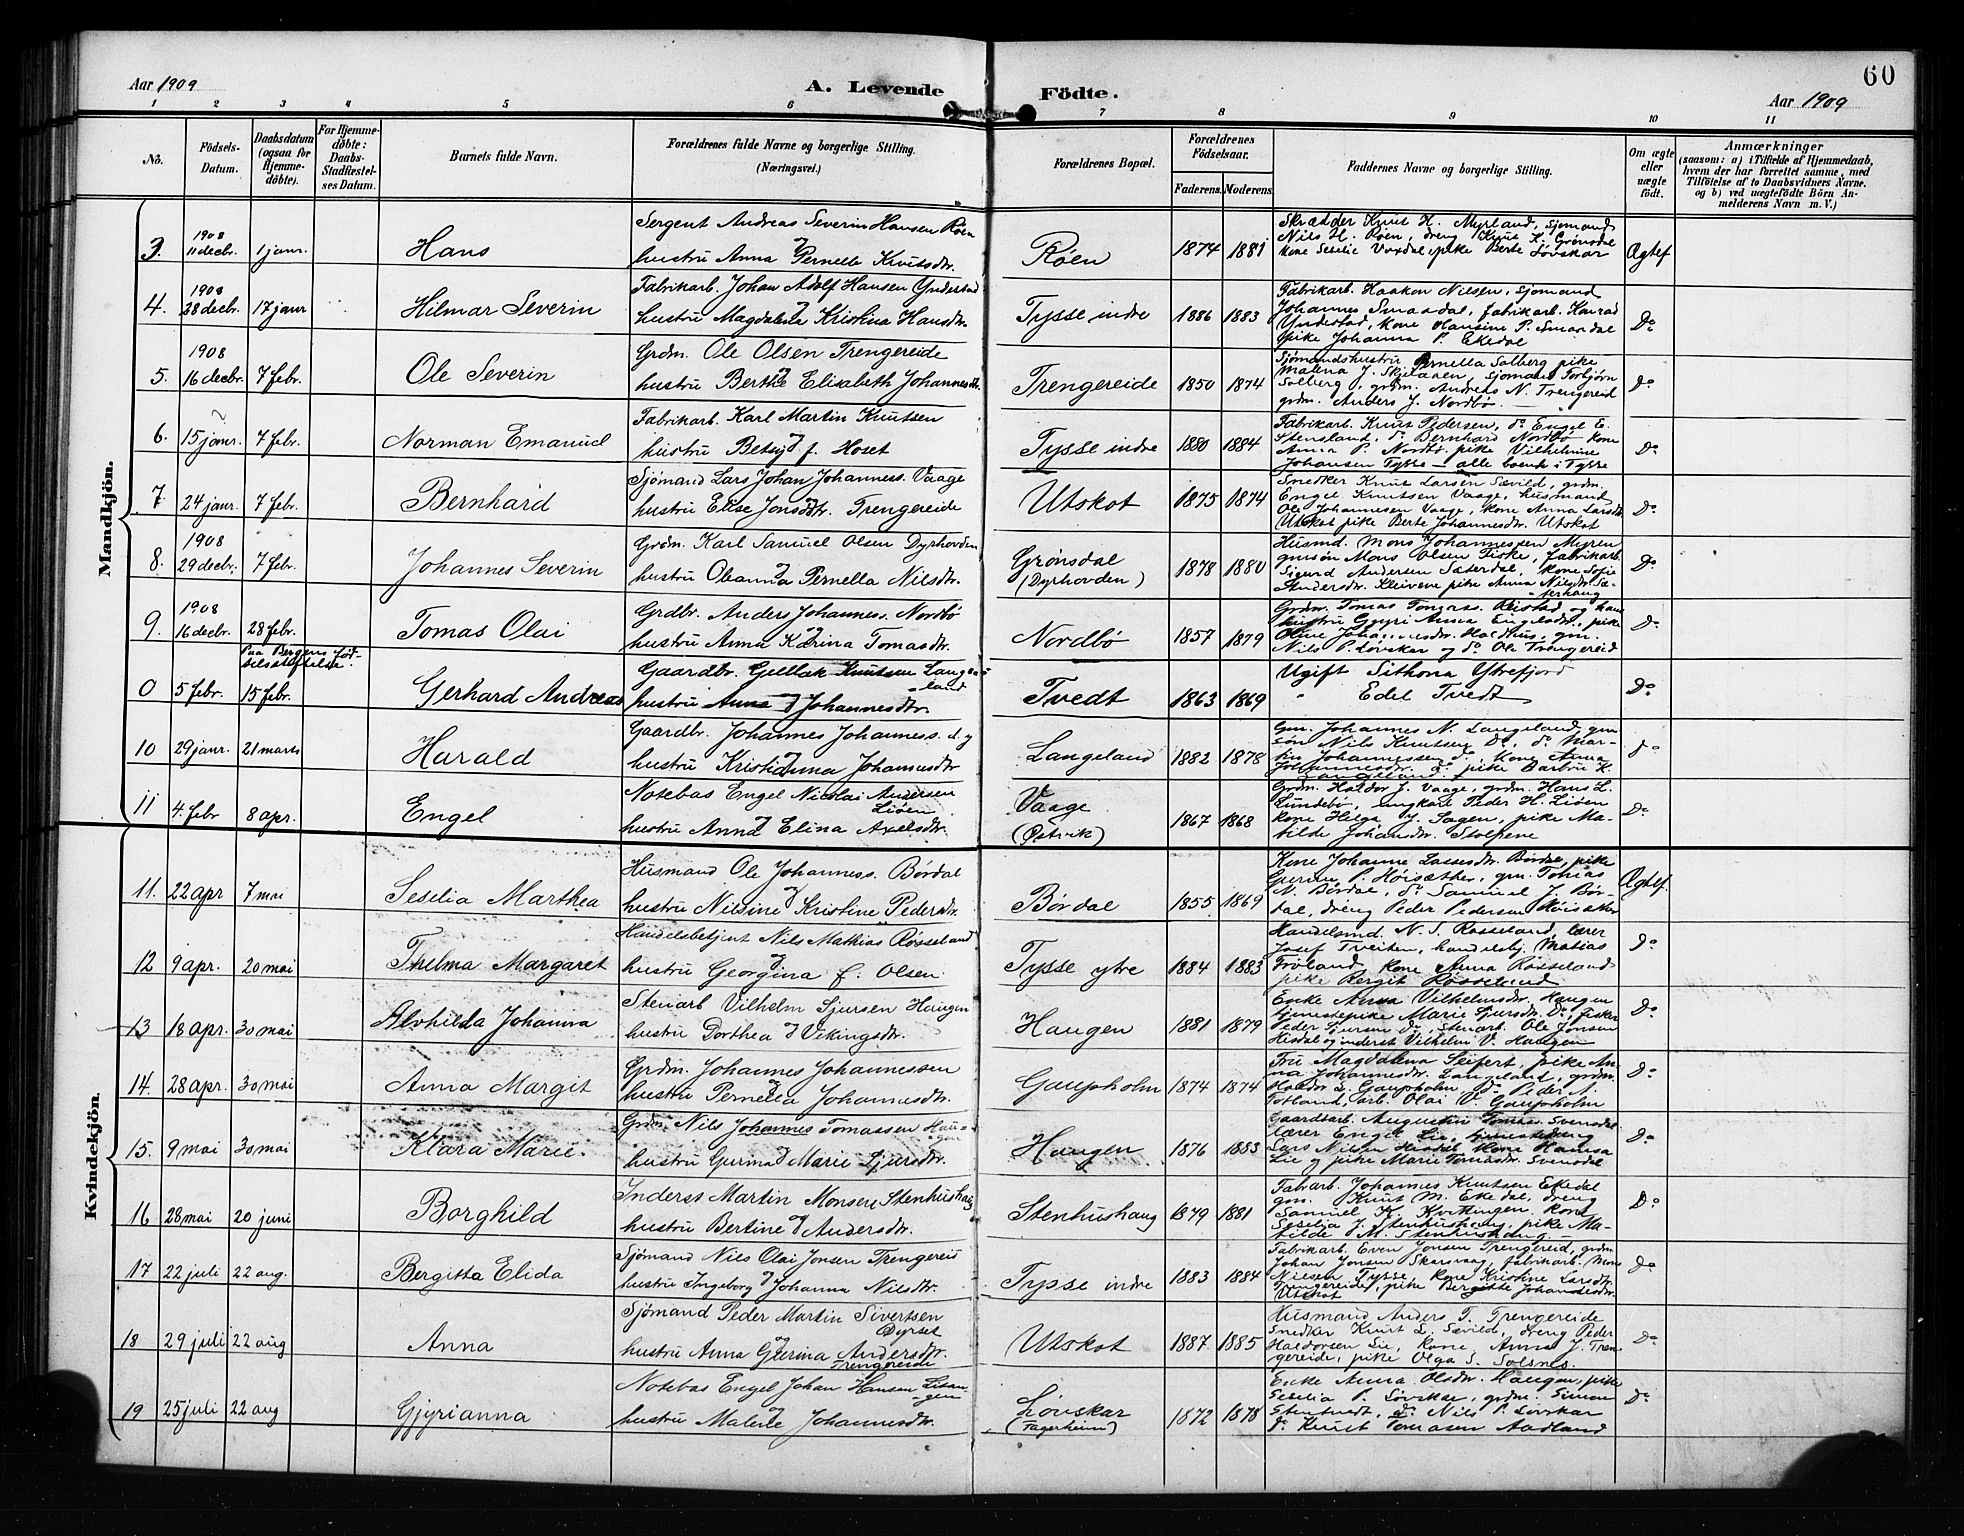 60
Aar 1909
A. Levende Födte.
Aar 1909
1 2 3 4 5 6 7 8 9 10 11
No.
Födsels-Datum.
Daabsdatum (ogsaa for Hjemmedöbte).
For Hjemmedöbte: Daabs-Stadfæstelses Datum.
Barnets fulde Navn.
Forældrenes fulde Navne og borgerlige Stilling.
(Næringsvei.)
Forældrenes Bopæl.
Forældrenes Födselsaar.
Faderens. Moderens.
Faddernes Navne og borgerlige Stilling.
Om ægte eller uægte födt.
Anmærkninger
(saasom: a) i Tilfælde af Hjemmedaab,
hvem der har forrettet samme, med
Tilföielse af to Daabsvidners Navne,
og b) ved uægtefödte Börn Anmelderens Navn m. V.)
Mandkjön.
3. 1908 11 decbr. 1 janr. Hans
Sergent Andreas Severin Hansen Røen
hustru Anna Pernella Knutsdtr.
Røen 1874 1881
Skrædder Knut H. Myrland, sjømand
Nils H. Røen, dreng Knut K. Grønsdal
kone Seselie Vaxdal, pike Berte Løvskar
Ægtef
4. 1908 28 decbr. 17 janr Hilmar Severin
Fabrikarb. Johan Adolf Hansen Yndestad
hustru Magdalena Kristina Hansdtr.
Tysse indre 1886 1883
Fabrikarb. Haakon Nilsen, sjømand
Johannes Smaadal, fabrikarb. Konrad
Yndestad, kone Hansine P. Smaadal
pike Johanna P. Ekedal
Do
5. 1908 16 decbr. 7 febr. Ole Severin
Grdm. Ole Olsen Trengereide
hustru Berthe Elisabeth Johannesdtr.
Trengereide 1850 1874
Sjømandshustru Pernella Solberg pike
Malena J. Skjelaaen, sjømand Torbjørn
Solberg, grdm. Andreas N. Trengereid
grdm. Anders J. Nordbø.
Do
6. 15 janr. 7 febr. Norman Emanuel
Fabrikarb. Karl Martin Knutsen
hustru Betsy f. Hoset
Tysse indre 1880 1884
Fabrikarb. Knut Pedersen, do Engel E.
Stensland, do Bernhard Nordbø kone
Anna P. Nordbø, pike Vilhelmine
Johansen Tysse – alle boende i Tysse
Do
7. 24 janr. 7 febr. Bernhard
Sjömand Lars Johan Johanness. Vaage
hustru Elise Jonsdtr. Trengereide
Utskot 1875 1874
Snedker Knut Larsen Sævild, grdm.
Engel Knutsen Vaage, husmand
Ole Johannesen Vaage, kone Anna Larsdtr
Utskot pike Berte Johannesdtr. Utskot
Do
8. 1908 29 decbr. 7 febr. Johannes Severin
Grdm. Karl Samuel Olsen Dyrhovden
hustru Oleanna Pernella Nilsdtr.
Grønsdal (Dyrhovden) 1878 1880
Husmd. Mons Johannessen Myren
gmsøn Mons Olsen Fiske, fabrikarb.
Sigurd Andersen Sæterdal, kone Sofie
Andersdtr. Kleivene pike Anna Nilsdtr. Sæterhaug
Do
9. 1908 16 decbr. 28 febr. Tomas Olai
Grdbr. Anders Johanness. Nordbø
hustru Anna Karina Tomasdtr.
Nordbø 1857 1879
Nils P. Løvskar og do Ole Trengereid
Do
Paa Bergens Fødselsstiftelse.
0 5 febr. 15 febr. Gerhard Andreas
Gaardbr. Gullak Knutsen Langeland
hustru Anna Johannesdtr.
Tvedt 1863 1869
Ugift Sithona Ytrefjord
" Edel Tvedt
Do
10 29 janr. 21 marts Harald
Gaardbr. Johannes Johanness. d. y
hustru Kristianna Johannesdtr
Langeland 1882 1878
Gm. Johannes N. Langeland, gmsøn
Nils Knutsen do, do Martin
Johannessen do, kone Anna
Johannesdtr. do pike Barbru K.
Langeland.
Do
11 4. febr 8 apr. Engel
Notebas Engel Nicolai Andersen Liøen
hustru Anna Elina Axelsdtr.
Vaage (Østvik) 1867 1868
Grdm. Haldor J. Vaage, grdm. Hans L.
Lundebø, ungkarl Peder H. Liøen
kone Helga J. Sagen, pike Matilde
Johansdtr. Stolpene
Do
Kvindekjön.
11. 22 apr 7 mai Seselia Marthea
Husmand Ole Johanness. Børdal
hustru Nilsine Kristine Pedersdtr.
Børdal 1855 1869
Kone Johanne Lassesdtr. Børdal, pike
Gurine P. Høisæther, gm. Tobias
N. Børdal, do Samuel J. Børdal,
dreng Peder Pedersen Høisæter
Ægtef.
12 9 apr. 20 mai Thelma Margaret
Handelsbetjent Nils Mathias Røsseland
hustru Georgina f. Olsen.
Tysse ytre 1884 1883
Handelsmd. N. S. Røsseland, lærer
Josef Tveiten, handelsbj. Matias
Frøland, kone Anna Røsseland
pike Bergit Røsseland
Do
13 18 apr. 30 mai Alvhilda Johanna
Stenarb Vilhelm Sjursen Haugen
hustru Dorthea Vikingsdtr.
Haugen 1881 1879
Enke Anna Vilhelmsdtr. Haugen
tjenestepike Marie Sjursdtr. Do, fisker
Peder Sjursen Do, stenarb. Ole Jonsen
Hisdal og inderst Vilhelm V. Haugen
Do
14. 28 apr. 30 mai Anna Margit
Grdm. Johannes Johannessen
hustru Pernella Johannesdtr.
Gaupholm 1874 1874
Fru Magdalena Seifert, pike Anna
Johannesdtr. Langeland, grdm.
Haldor L. Gaupholm, do Peder A.
Totland, arb. Olai V. Gaupholm
Do
15. 9 mai 30 mai Klara Marie.
Grdm. Nils Johannes Tomassen Haugen
hustru Gurina Marie Sjursdtr.
Haugen 1876 1883
Gaardarb. Augustin Tomas. Svensdal
lærer Engel Lie, tjenestedreng
Lars Nilsen Hisdal kone Hansa
Lie og pike Marie Tomasdtr. Svensdal
Do
16 28 mai 20 juni Borghild
Inderst Martin Monsen Stenhushaug
hustru Bertine Andersdtr.
Stenhushaug 1879 1881
Fabrarb. Johannes Knutsen Ekedal
gm. Knut M. Ekedal, dreng
Samuel K. Kvittingen, kone
Seselia J. Stenhushaug, pike Matilde
M. Stenhushaug.
Do
17 22 juli 22 aug. Bergitta Elida
Sjømand Nils Olai Jonsen Trengereid
hustru Ingeborg Johanna Nilsdtr.
Tysse indre 1883 1884
Fabrikarb. Even Jonsen Trengereid, grdm.
Johan Jonsen Skarsvaag, fabrikarb. Mons
Nilsen Tysse, kone Kristine Larsdtr.
Trengereide, pike Bergitte Johannesdtr.
Utskot
Do
18 29 juli 22 aug Anna
Sjømand Peder Martin Sivertsen Dyrset
hustru Anna Gurina Andersdtr. Trengereide
Utskot 1887 1885
Husmand Anders T. Trengereide
snedker Knut L. Sævild, dreng Peder
Haldorsen Lie, kone Anna J. Trengereide,
pike Olga S. Solsnes.
Do
19 25 juli 22 aug Gjyrianna
Notebas Engel Johan Hansen
hustru Malene Johannesdtr.
Løvskar (Fagerheim) 1872 1878
Enke Anna Olsdtr. Haugen, pike
Seselia P. Løvskar, grdm. Simon
Stentvedt, do Nils P. Løvskar
do Knut Tomasen Aadland
Do